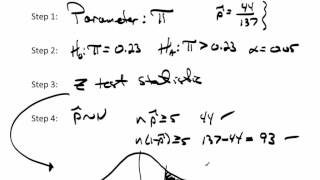 Step 1: Parameter: π p̂ = 44/137 }
Step 2: H₀: π = 0.23 Hₐ: π > 0.23 α = 0.05
Step 3: Z test statistic
Step 4: p̂ ~ N n p̂ ≥ 5 44 ✓
n(1-p̂) ≥ 5 137-44 = 93 ✓